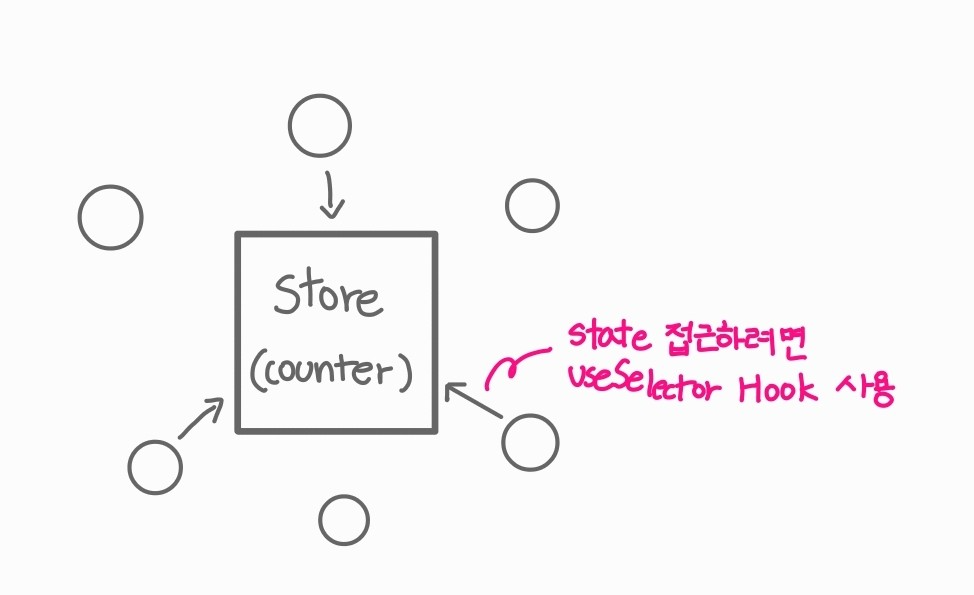 Store
(counter)
state 접근하려면
useSelector Hook 사용